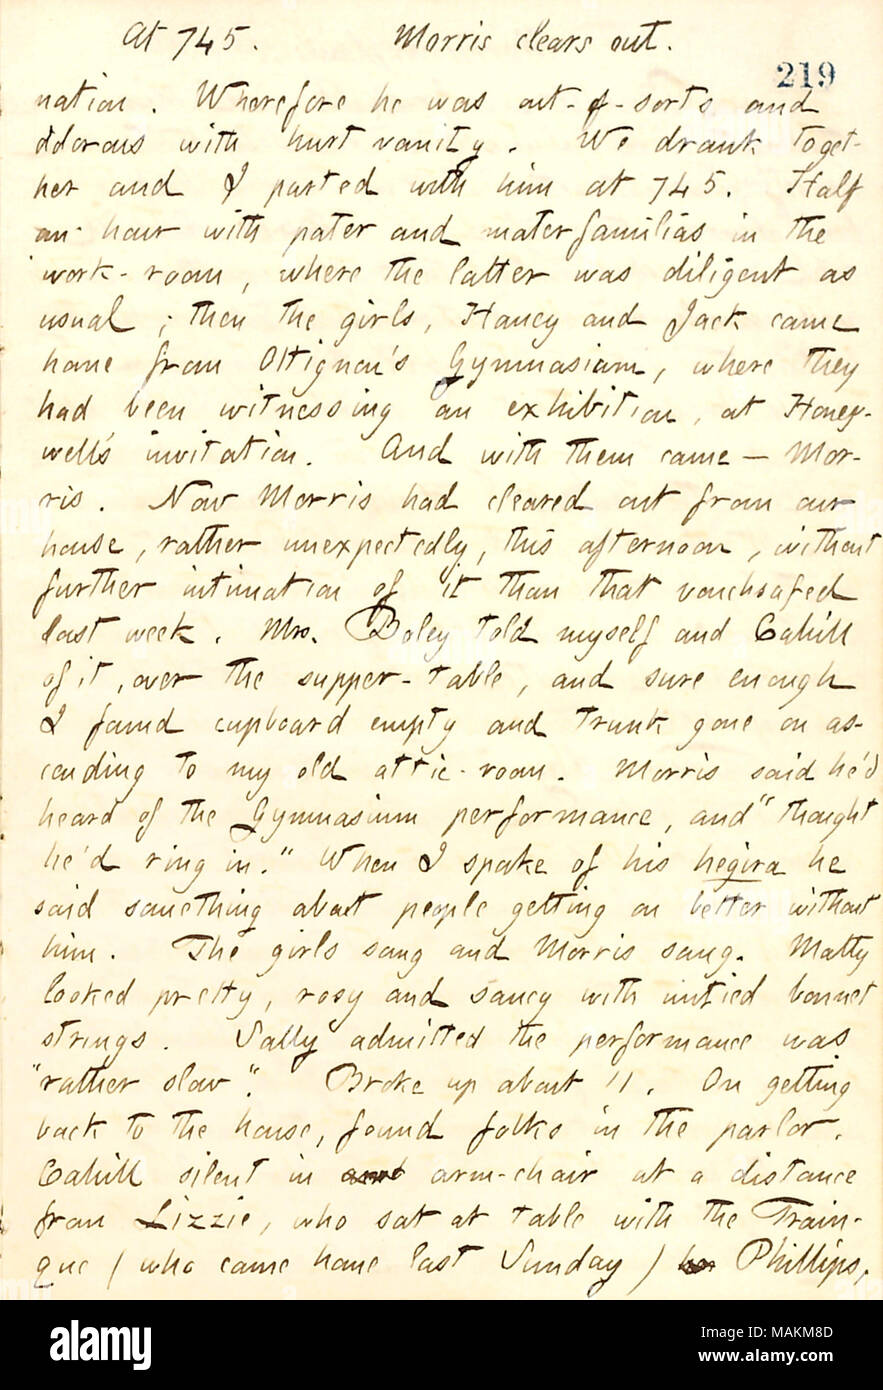 At 745. Morris clears out.
219
nation. Wherefore he was out-of-sorts and
odorous with hurt vanity. We drank toget-
her and I parted with him at 745. Half
an hour with pater and materfamilias in the
work-room, where the latter was diligent as
usual; then the girls, Haney and Jack came
home from Ottignon's Gymnasium, where they
had been witnessing an exhibition, at Honey-
well's invitation. And with them came — Mor-
ris. Now Morris had cleared out from our
house, rather unexpectedly, this afternoon, without
further intimation of it than that vouchsafed
last week. Mrs. Boley told myself and Cahill
of it, over the supper-table, and sure enough
I found cupboard empty and trunk gone on as-
cending to my old attic-room. Morris said he'd
heard of the Gymnasium performance, and "thought
he'd ring in." When I spoke of his hegira he
said something about people getting on better without
him. The girls sang and Morris sang. Matty
looked pretty, rosy and saucy with untied bonnet
strings. Sally admitted the performance was
"rather slow." Broke up about 11. On getting
back to the house, found folks in the parlor.
Cahill silent in arm-chair at a distance
from Lizzie, who sat at table with the Train-
que (who came home last Sunday) Phillips,
alamy
Image ID: MAKM8D
www.alamy.com